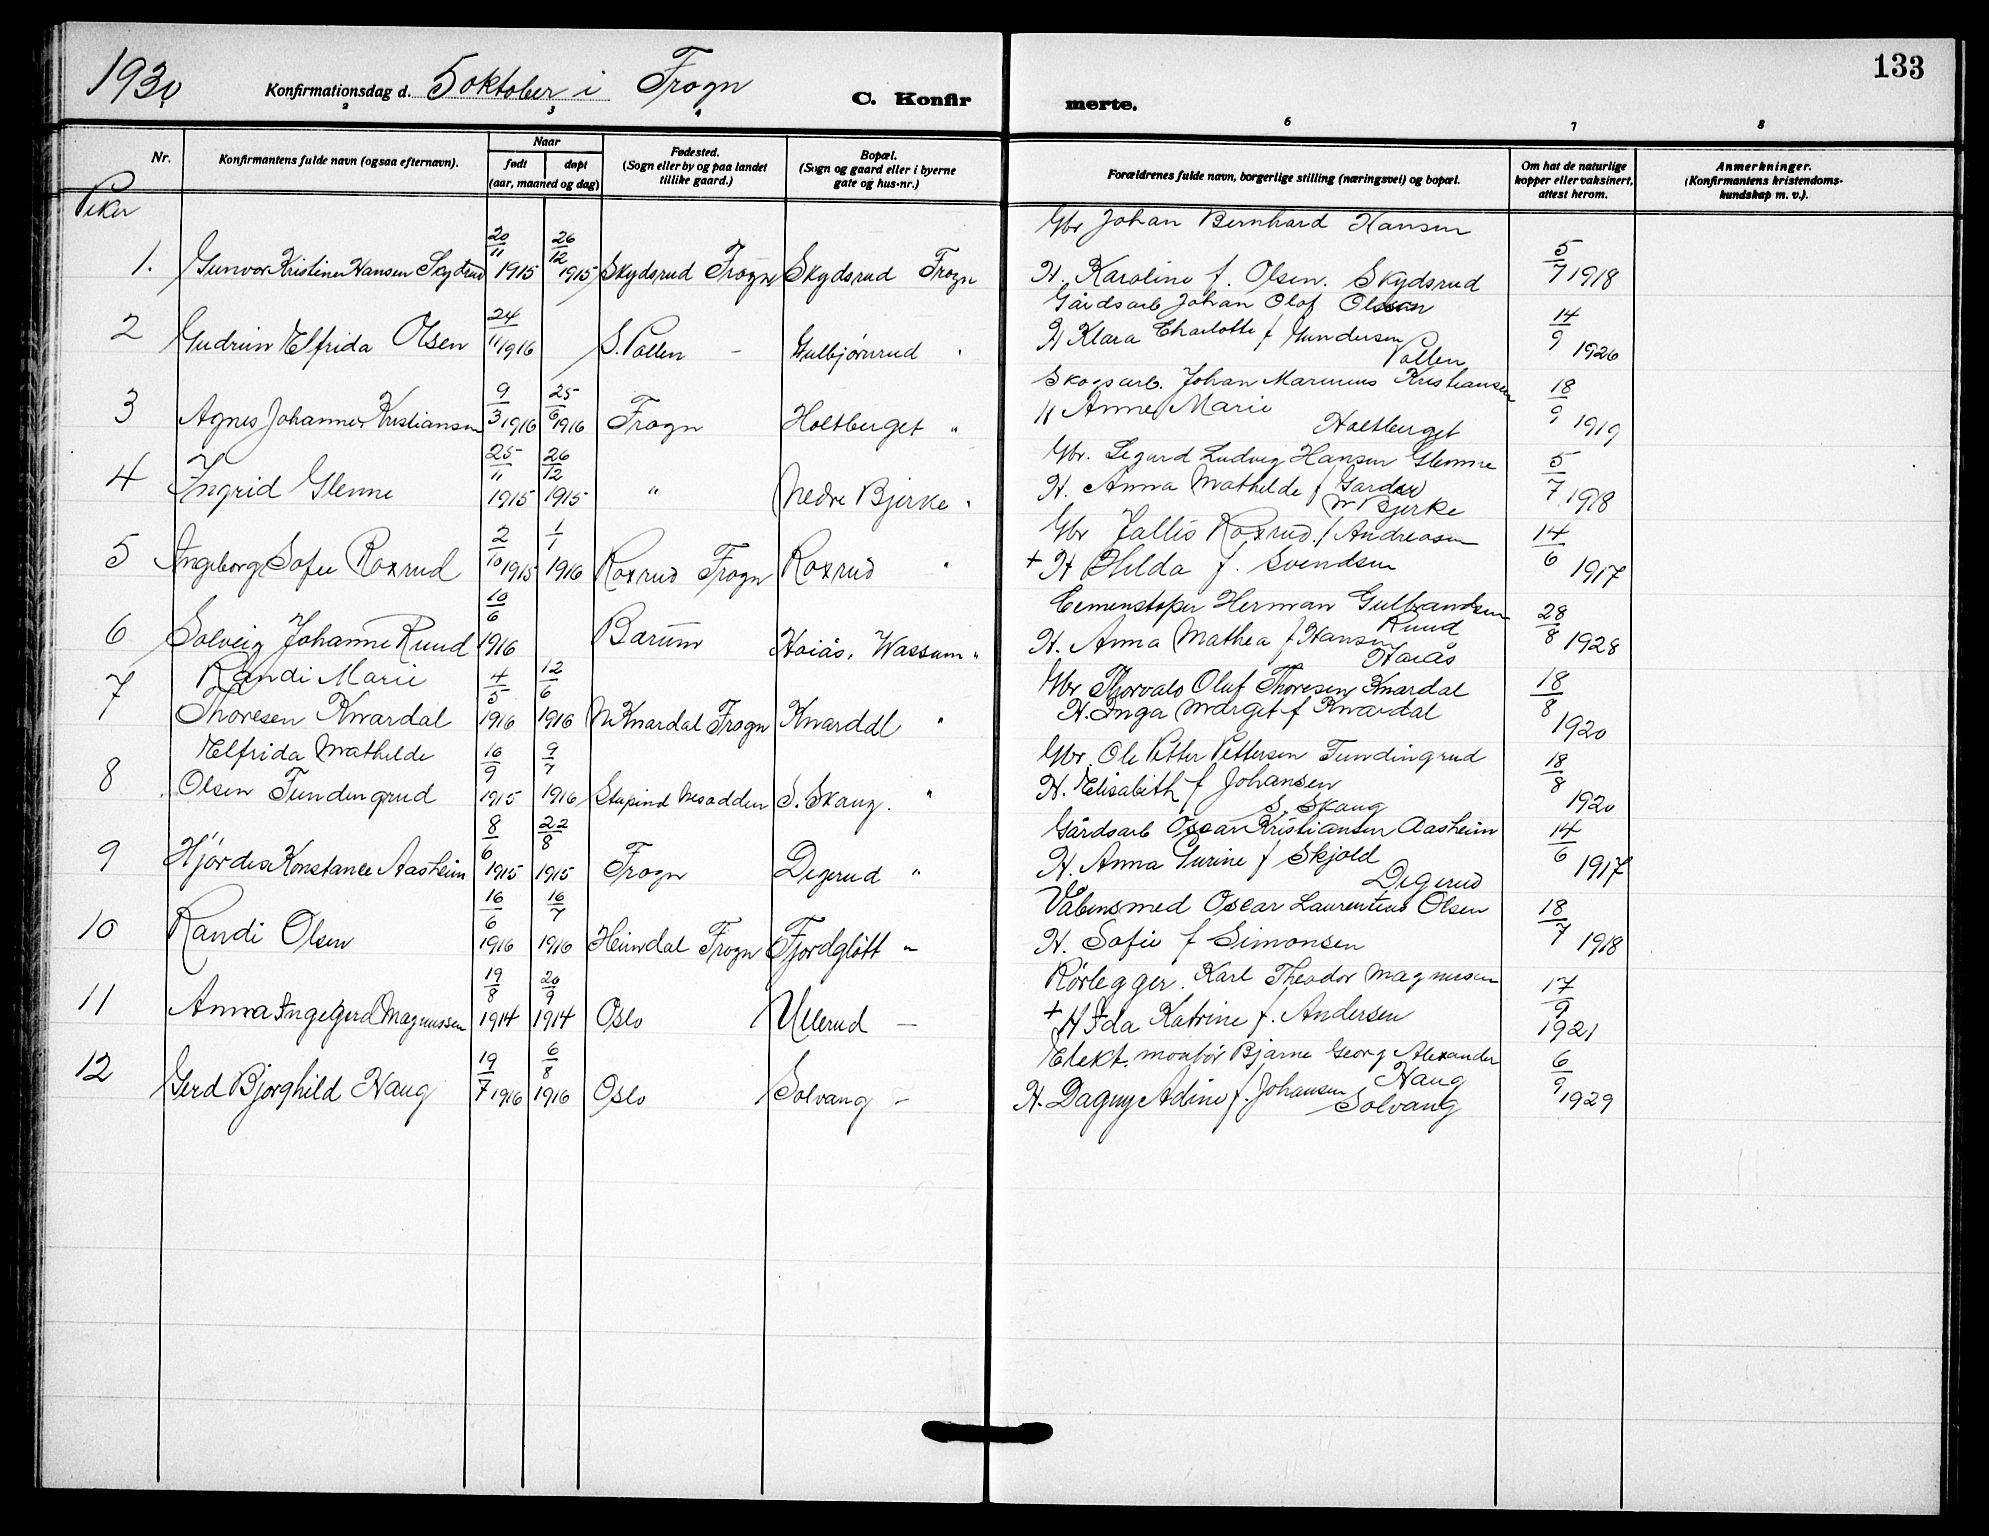 133
1930 Konfirmationsdag d. 5 oktober i Frogn C. Konfirmerte.
2 3 4 6 7 8
Nr. Konfirmantens fulde navn (ogsaa efternavn). Naar født døpt (aar, maaned og dag) Fødested. (Sogn eller by og paa landet tillike gaard.) Bopæl. (Sogn og gaard eller i byerne gate og hus-nr.) Forældrenes fulde navn, borgerlige stilling (næringsvei) og bopæl. Om hat de naturlige kopper eller vaksinert, attest herom. Anmerkninger. (Konfirmantens kristendoms-kundskap m. v.).
Piker
1. Gunvor Kristine Hansen Skydsrud 20/11 1915 26/12 1915 Skydsrud Frogn Skydsrud Frogn Gbr Johan Bernhard Hansen
H. Karoline f. Olsen. Skydsrud 5/7 1918
2 Gudrun Elfrida Olsen 24/11 1916 S. Pollen - Gulbjørnrud " Gårdsarb Johan Olof Olsson
H Klara Charlotte f Gundersen
Pollen 14/9 1920
3 Agnes Johanne Kristiansen 9/3 1916 25/6 1916 Frogn Holtberget " Skogsarb. Johan Marinius Kristiansen
H Anne Marie
Holtberget 18/9 1919
4 Ingrid Glenne 25/11 1915 26/12 1915 " Nedre Bjerke " Gbr. Sigurd Ludvig Hansen Glenne
H. Anna Mathilde f Garder
N Bjerke 5/7 1918
5 Ingeborg Sofie Roxrud 2/10 1915 1/1 1916 Roxrud Frogn Roxrud " Gbr Jallis Roxrud f Andreasen
+ H Hilda f. Svendsen 14/6 1917
6 Solveig Johanne Ruud 10/6 1916 Bærum Haiås, Wassum " Cementstøper Herman Gulbrandsen
Ruud
H. Anna Mathea f Hansen
Haiås 28/8 1928
7 Randi Marie
Thoresen Knardal 4/5 1916 12/6 1916 N Knardal Frogn Knardal " Gbr Thorvald Oluf Thoresen Knardal
H. Inga Marget f Knardal 18/8 1920
8 Elfrida Mathilde
Olsen Fundingrud 16/9 1915 9/7 1916 Stupind Nesodden S. Skaug. " Gbr. Ole Petter Pettersen Fundingrud
H. Elisabeth f Johansen
S. Skaug 18/8 1920
9 Hjørdis Konstance Aasheim 8/6 1915 22/8 1915 Frogn Digerud " Gårdsarb Oscar Kristiansen Aasheim
H. Anna Gurine f Skjold
Digerud 14/6 1917
10 Randi Olsen 16/6 1916 16/7 1916 Heimdal Frogn Fjordgløtt " Våbensmed Oscar Laurentius Olsen
H. Sofie f Simonsen 18/7 1918
11 Anna Ingegerd Magnussen 19/8 1914 20/9 1914 Oslo Ullerud - Rørlegger. Karl Theodor Magnussen
+ H Ida Katrine f. Andersen 17/9 1921
12 Gerd Bjorghild Haug 19/7 1916 6/8 1916 Oslo Solvang - Elekt. montør Bjarne Georg Alexander
Haug
H. Dagny Adine f. Johansen Solvang 6/9 1929